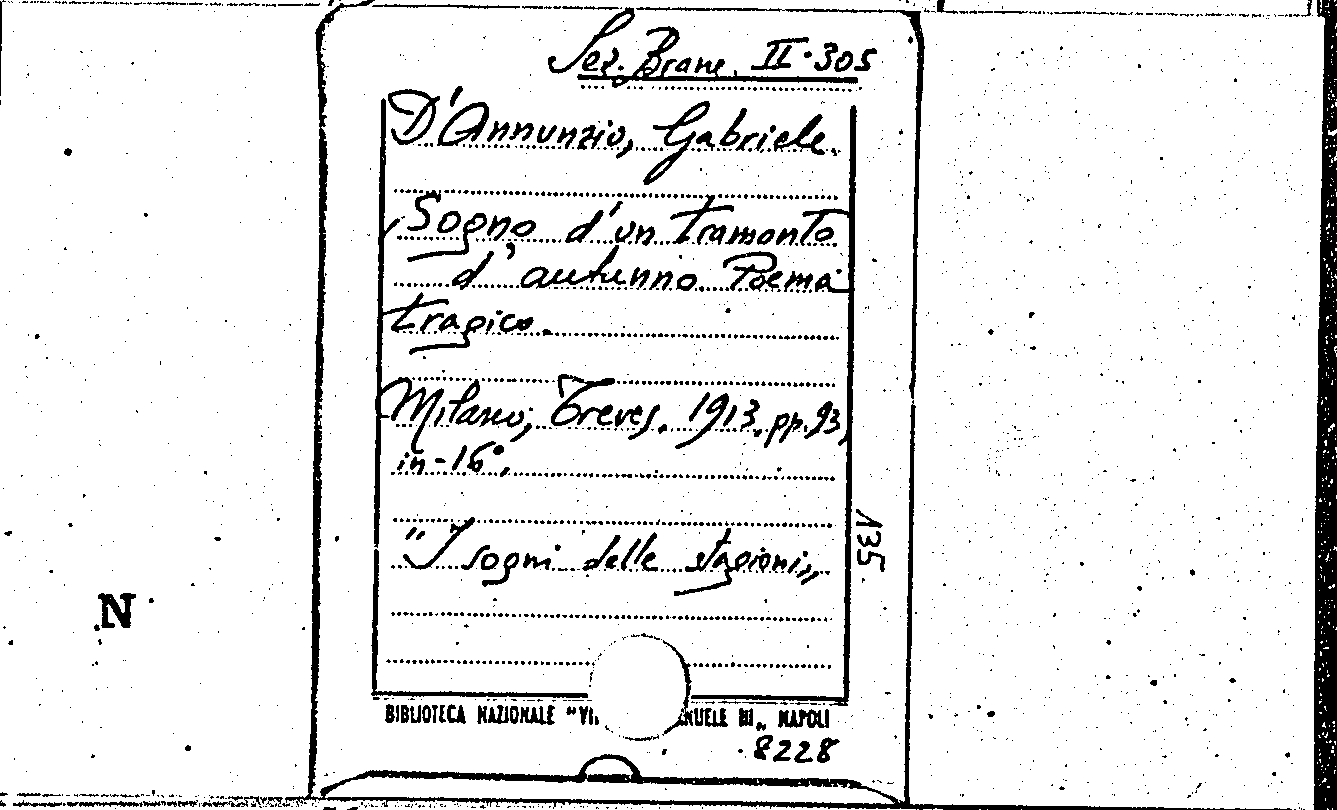 Sez. Branc. II-305
D'Annunzio, Gabriele.
Sogno d'un tramonto
d'autunno. Poema
tragico.
Milano, Treves. 1913. pp. 93,
in-16°.
"I sogni delle stagioni„
135
N
BIBLIOTECA NAZIONALE "VI NUELE III„ NAPOLI
8228